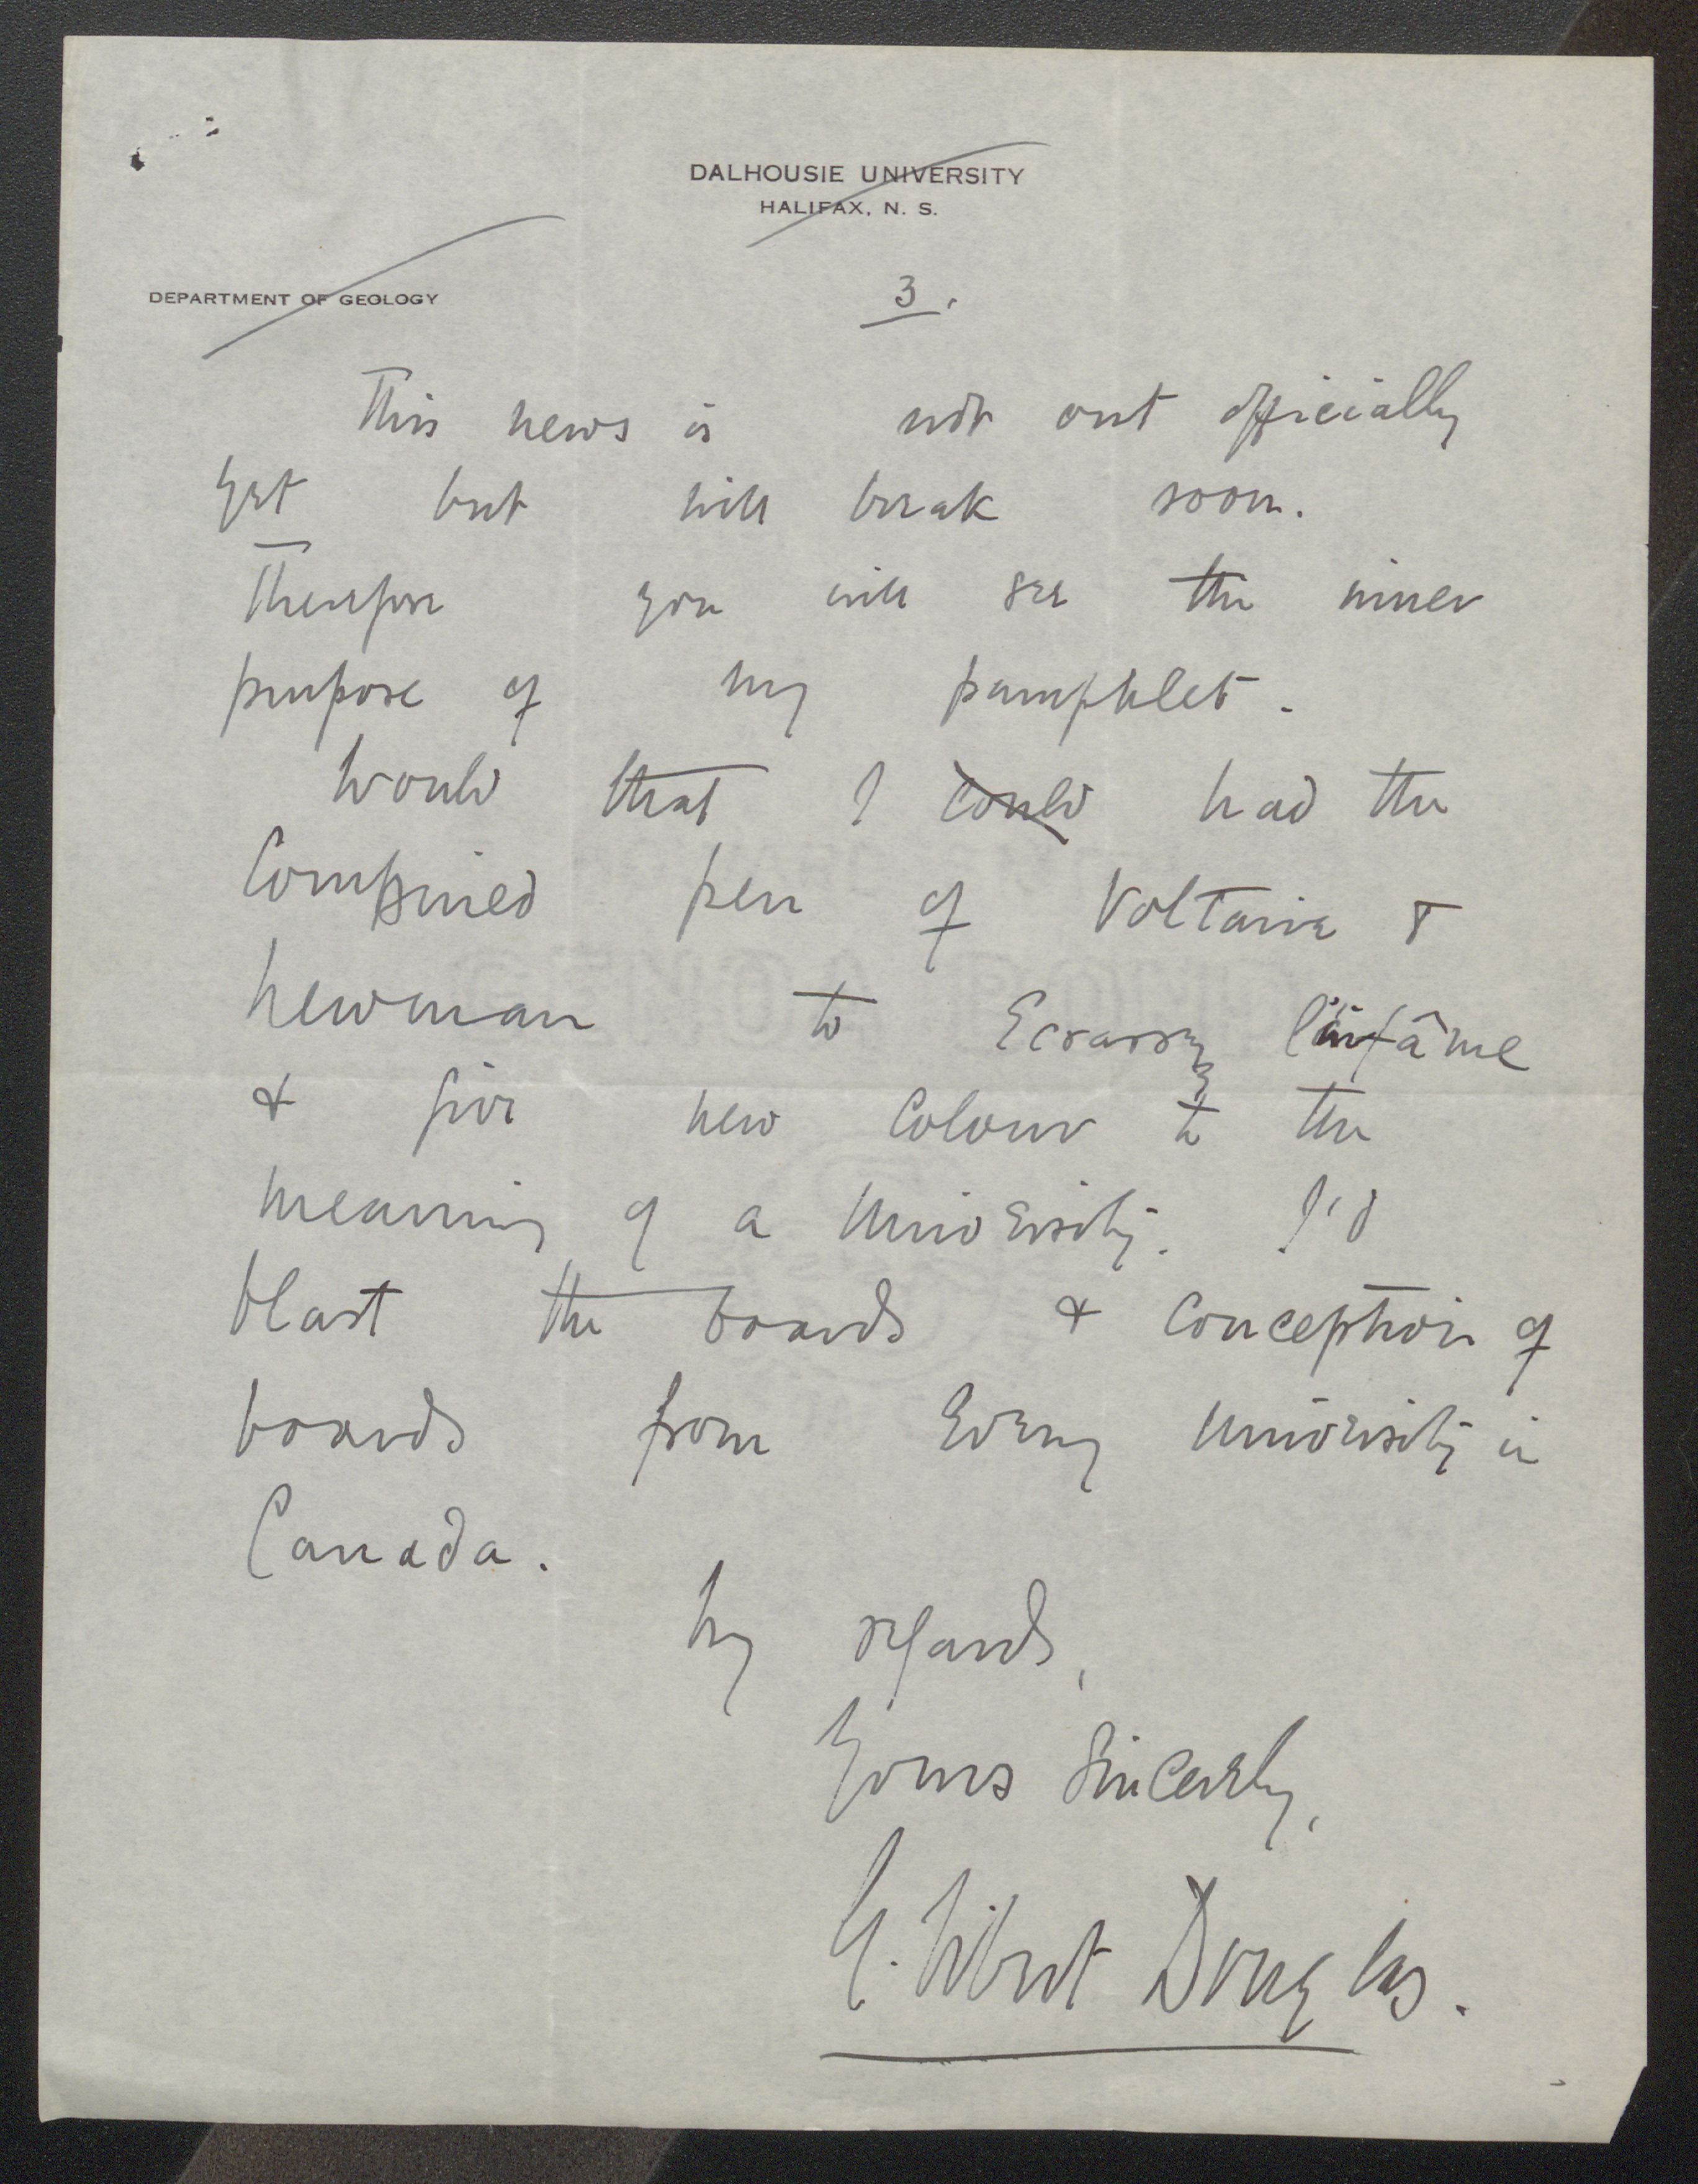 DALHOUSIE UNIVERSITY
HALIFAX, N. S.
DEPARTMENT OF GEOLOGY
3.
This news is not out officially
yet but will break soon.
Therefore you will see the inner
purpose of my pamphlet.
Would that I could had the
Combined pen of Voltaire &
Newman to Ecrasez l'infâme
& give new Colour to the
meaning of a University. I'd
blast the boards & Conception of
boards from Every University in
Canada.
My regards,
Yours Sincerely,
G. Vibert Douglas.